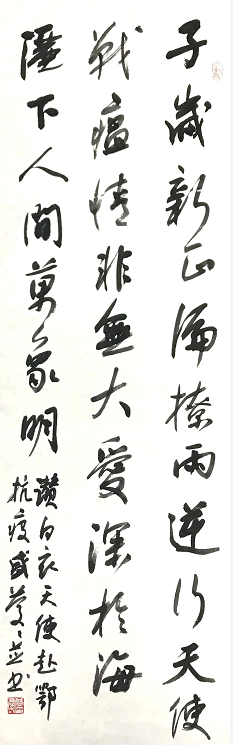 子歲新正雨逆行天使
戰瘟情非無大愛深於海
灑下人間萬象明
讚白衣天使赴鄂
抗疫並書